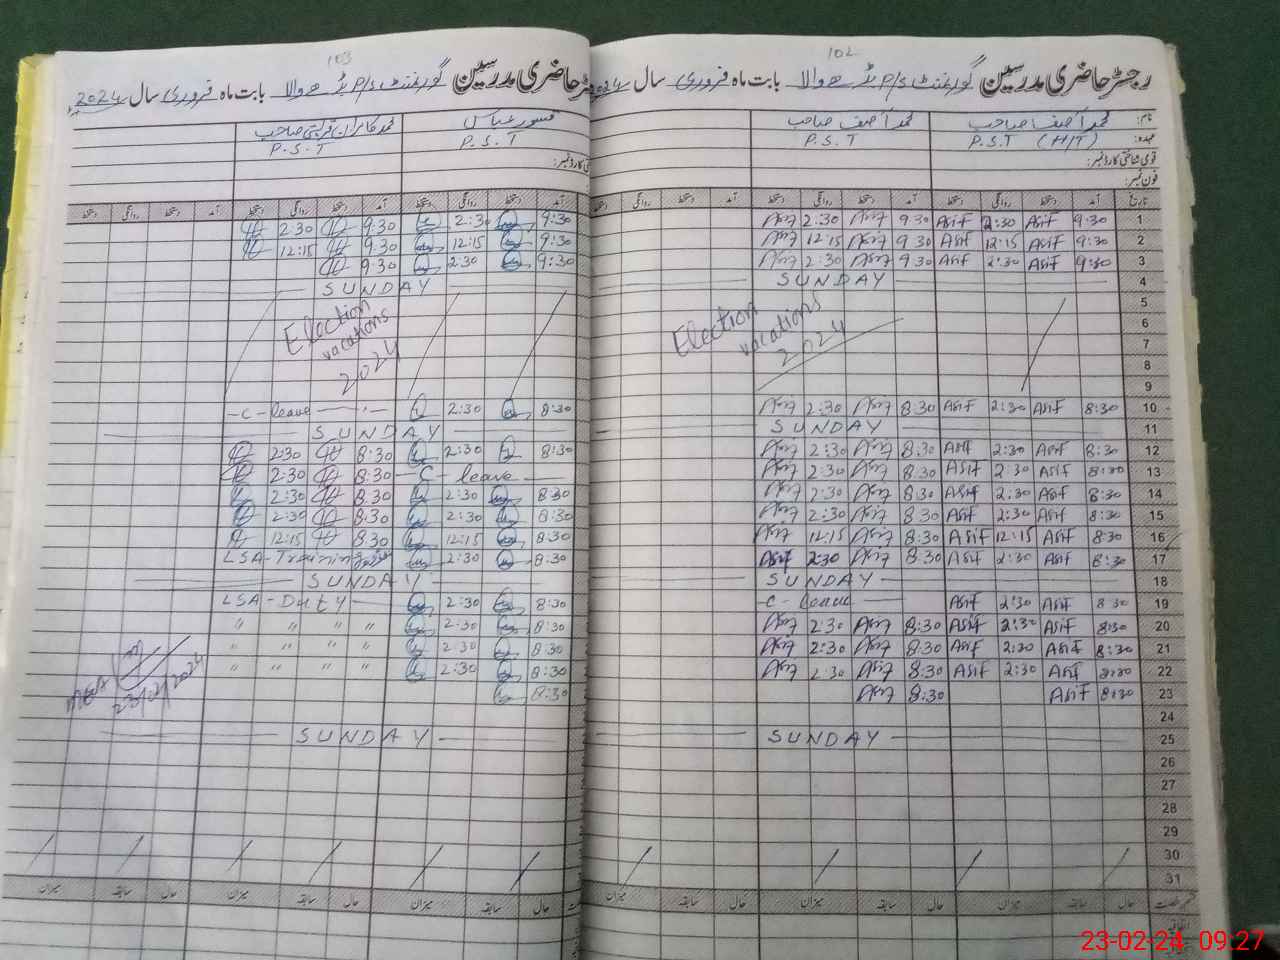 102
رجسٹر حاضری مدرسین گورنمنٹ P/S بڈھے والا بابت ماہ فروری سال 2024
نام: محمد آصف صاحب محمد آصف صاحب
عہدہ: P.S.T (H/T) P.S.T
قومی شناختی کارڈ نمبر:
فون نمبر:
تاریخ آمد دستخط روانگی دستخط آمد دستخط روانگی دستخط آمد دستخط روانگی دستخط
1 9:30 Asif 2:30 Asif 9:30 2:30
2 9:30 Asif 12:15 Asif 9:30 12:15
3 9:30 Asif 2:30 Asif 9:30 2:30
4 SUNDAY
5
6 Election
7 vacations
8 2024
9
10 8:30 Asif 2:30 Asif 8:30 2:30
11 SUNDAY
12 8:30 Asif 2:30 Asif 8:30 2:30
13 8:30 Asif 2:30 Asif 8:30 2:30
14 8:30 Asif 2:30 Asif 8:30 2:30
15 8:30 Asif 2:30 Asif 8:30 2:30
16 8:30 Asif 12:15 Asif 8:30 12:15
17 8:30 Asif 2:30 Asif 8:30 2:30 Asif
18 SUNDAY
19 8:30 Asif 2:30 Asif -C- leave
20 8:30 Asif 2:30 Asif 8:30 2:30
21 8:30 Asif 2:30 Asif 8:30 2:30
22 8:30 Asif 2:30 Asif 8:30 2:30
23 8:30 Asif 8:30
24
25 SUNDAY
26
27
28
29
30
31
حال سابقہ میزان حال سابقہ میزان حال سابقہ
103
رجسٹر حاضری مدرسین گورنمنٹ P/S بڈھے والا بابت ماہ فروری سال 2024
قیصر عباس محمد کامران قریشی صاحب
P.S.T P.S.T
آمد دستخط روانگی دستخط آمد دستخط روانگی دستخط آمد دستخط روانگی دستخط
9:30 2:30 9:30 2:30
9:30 12:15 9:30 12:15
9:30 2:30 9:30
SUNDAY
Election
vacations
2024
8:30 2:30 -C- leave
SUNDAY
8:30 2:30 8:30 2:30
C- leave 8:30 2:30
8:30 2:30 8:30 2:30
8:30 2:30 8:30 2:30
8:30 12:15 8:30 12:15
8:30 2:30 LSA-Training
SUNDAY
8:30 2:30 LSA-Duty
8:30 2:30 " " " "
8:30 2:30 " " " "
8:30 2:30 " " " "
8:30
SUNDAY
MEA
23/02/2024
حال سابقہ میزان حال سابقہ میزان حال سابقہ میزان
23-02-24 09:27